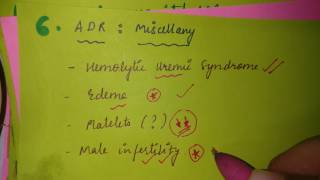 6. ADR : Miscellany
- Hemolytic Uremic Syndrome
- Edema
- Platelets (?) ↓↓
- Male infertility